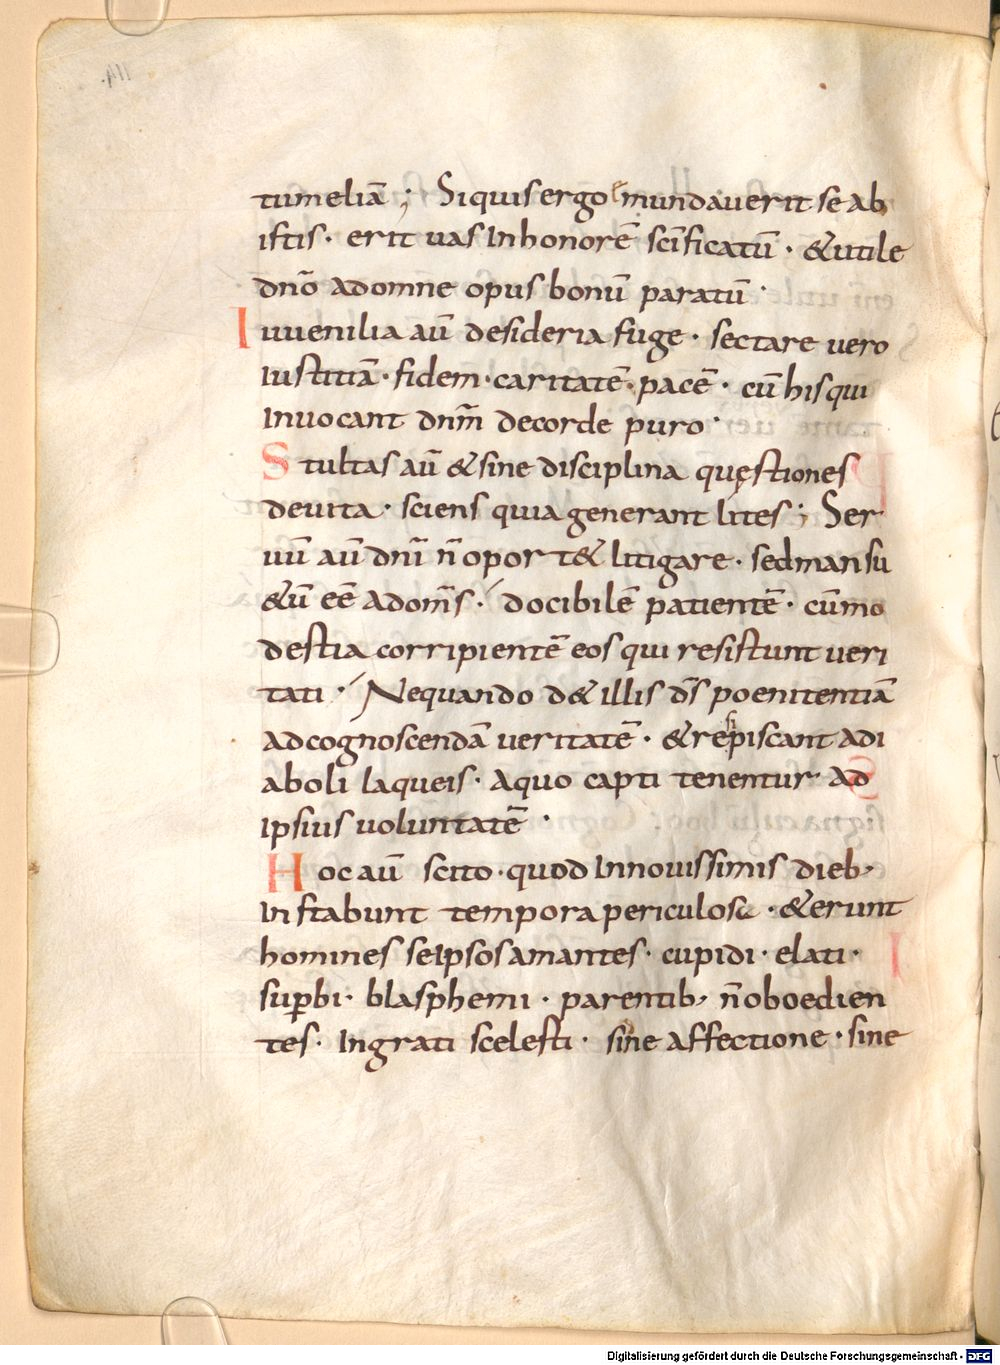 tumeliā ; Siquis ergo emundauerit se ab
istis · erit uas In honorē sc̄ificatū · & utile
dn̄o adomne opus bonū paratū ·
Iuuenilia aū desideria fuge · sectare vero
Iustitiā · fidem · caritatē · pacē · cū his qui
Inuocant dn̄m decorde puro ·
Stultas aū & sine disciplina quęstiones
deuita · sciens quia generant lites ; Ser
uū aū dn̄i n̄ oport& litigare · sed mansu
&ū eē ad om̄s · docibilē patientē · cū mo
destia corripientē eos qui resistunt ueri
tati · Nequando d& illis d̄s poenitentiā
ad cognoscendā ueritatē · & resipiscant a di
aboli laqueis · a quo capti tenentur ad
Ipsius voluntatē ·
Hoc aū scito · quod In nouissimis dieb·
Instabunt tempora periculosa · & erunt
homines se Ipsos amantes · cupidi · elati ·
suꝑbi · blasphemi · parentib· n̄ oboedien
tes · Ingrati scelesti · sine affectione · sine
114.
Digitalisierung gefördert durch die Deutsche Forschungsgemeinschaft - DFG